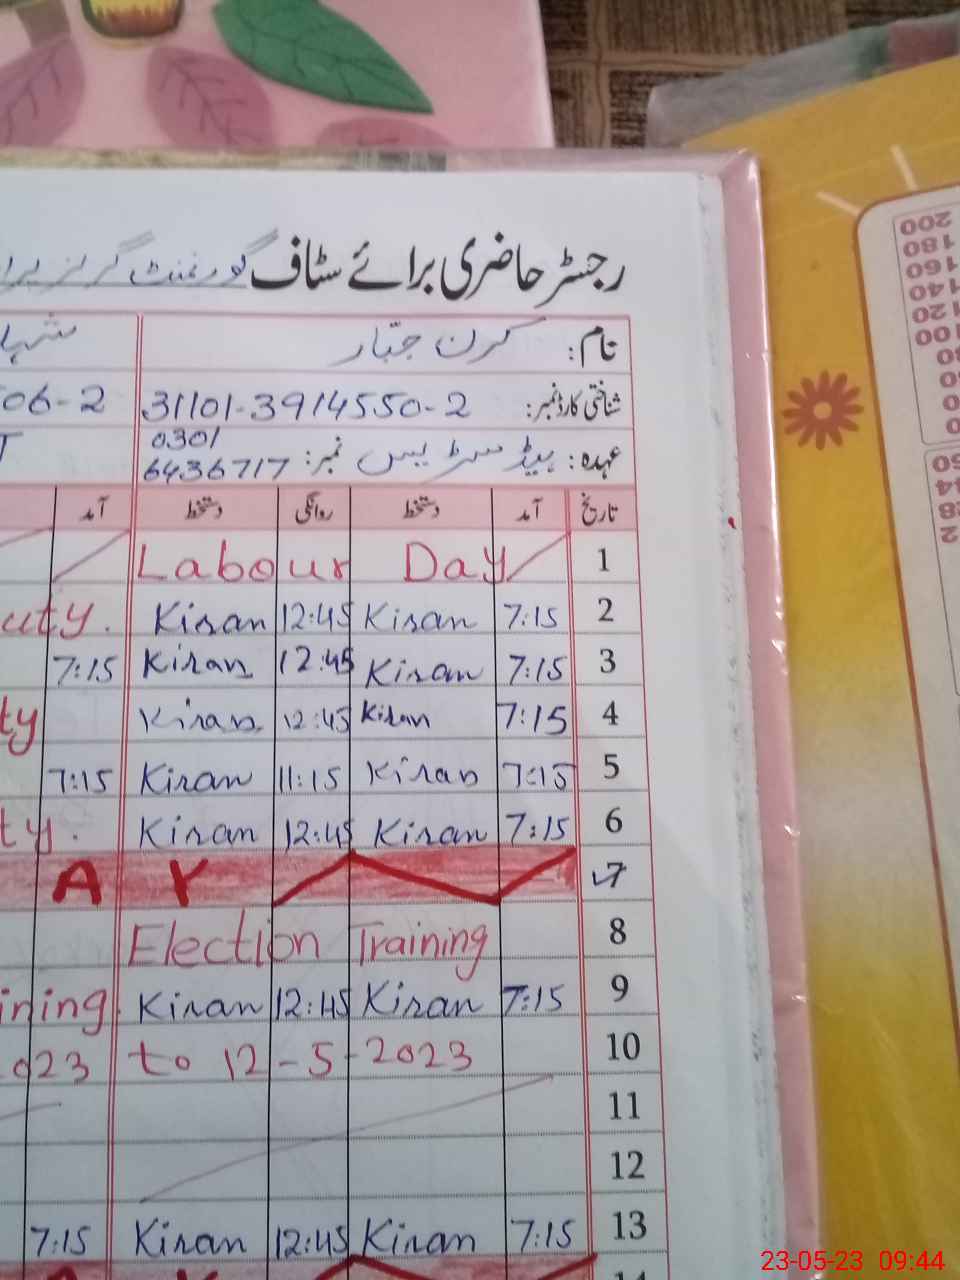 رجسٹر حاضری برائے سٹاف گورنمنٹ گرلز
نام: کرن جبّار
شناختی کارڈ نمبر: 31101-3914550-2 06-2
عہدہ: ہیڈ مسٹریس نمبر: 0301
6436717
تاریخ آمد دستخط روانگی دستخط آمد
1 Labour Day
2 7:15 Kiran 12:45 Kiran uty.
3 7:15 Kiran 12:45 Kiran 7:15
4 7:15 Kiran 12:45 Kiran ty
5 7:15 Kiran 11:15 Kiran 7:15
6 7:15 Kiran 12:45 Kiran ty.
7 A Y
8 Election Training
9 7:15 Kiran 12:45 Kiran ining.
10 2023 to 12-5-2023
11
12
13 7:15 Kiran 12:45 Kiran 7:15
14 A Y
200
180
160
140
120
100
23-05-23 09:44